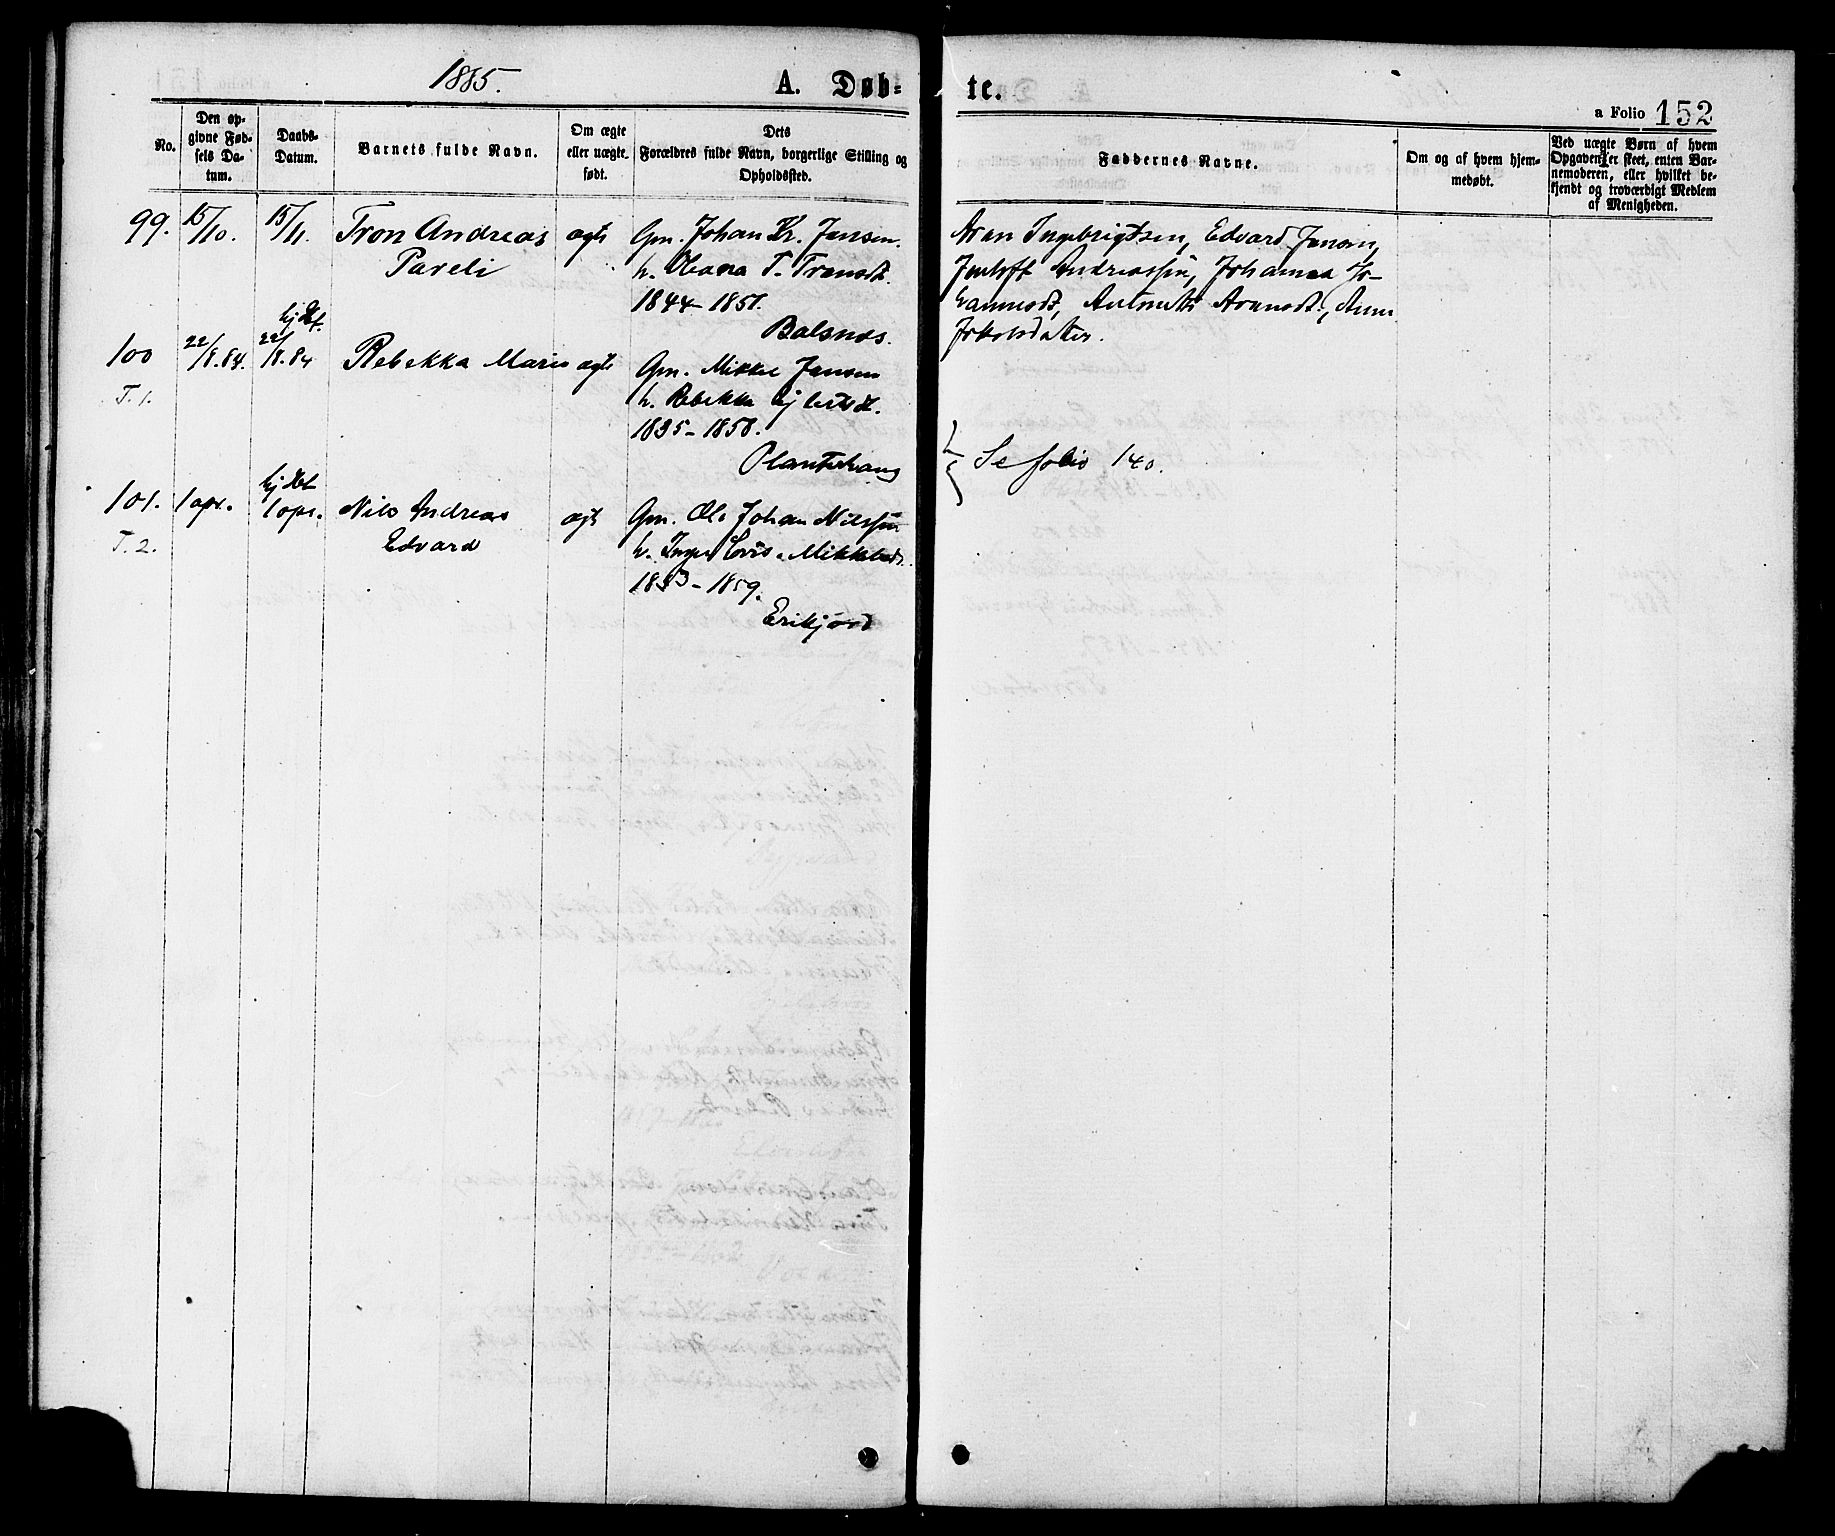 1885.
A. Døb-
te.
a Folio 152
No.
Den op-
givne Fød-
sels Da-
tum.
Daabs-
Datum.
Barnets fulde Navn.
Om ægte
eller uægte
født.
Dets
Forældres fulde Navn, borgerlige Stilling og
Opholdssted.
Faddernes Navne.
Om og af hvem hjem-
medøbt.
Ved uægte Børn af hvem
Opgaven er skeet, enten Bar-
nemoderen, eller hvilket be-
kjendt og troværdigt Medlem
af Menigheden.
99.
15/10.
15/11.
Tron Andreas
Pareli
ægte
Gm. Johan Kr. Jansen.
h. Oleana T. Tronsdt.
1844-1851.
Balsnes.
Aron Ingebrigtsen, Edvard Jansen,
Andreassen, Johanna Jo-
hannesdt, Aronsdt., Anna
Jakobsdatter.
100
T. 1.
22/8.84.
22/8.84
Rebekka Marie
ægte
Gm. Mikkel Jansen
h. Rebekka Ejlertsdt.
1835-1858.
Se folio 140.
101.
T. 2.
1 apr.
1 apr.
Nils Andreas
Edvard
ægte
Gm. Ole Johan Nilssen
h. Inger Lovise Mikkelsdt.
1853-1859.
Erikjord